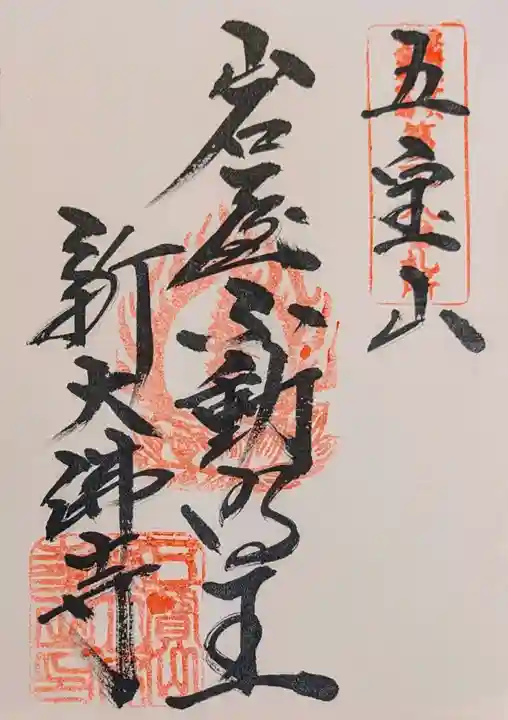 五宝山
岩屋不動明王
新大佛寺